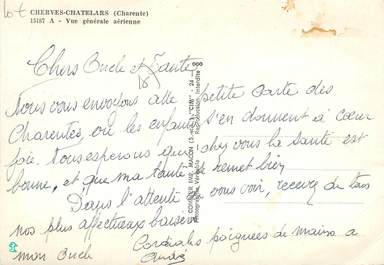 Lot
CHERVES-CHATELARS (Charente)
15187 A - Vue générale aérienne
Chers Oncle et Tante
18
Nous vous envoyons cette petite carte des
Charentes, où les enfants s'en donnent à cœur
joie. Nous espérons que chez vous la santé est
bonne, et que ma tante se remet bien
Dans l'attente de vous voir, recevez de tous
nos plus affectueux baisers
Cordiales poignées de mains a
mon Oncle
André
COMBIER IMP. MACON (S.-et-L.) "CIM"
Photographie Véritable - Reproduction Interdite